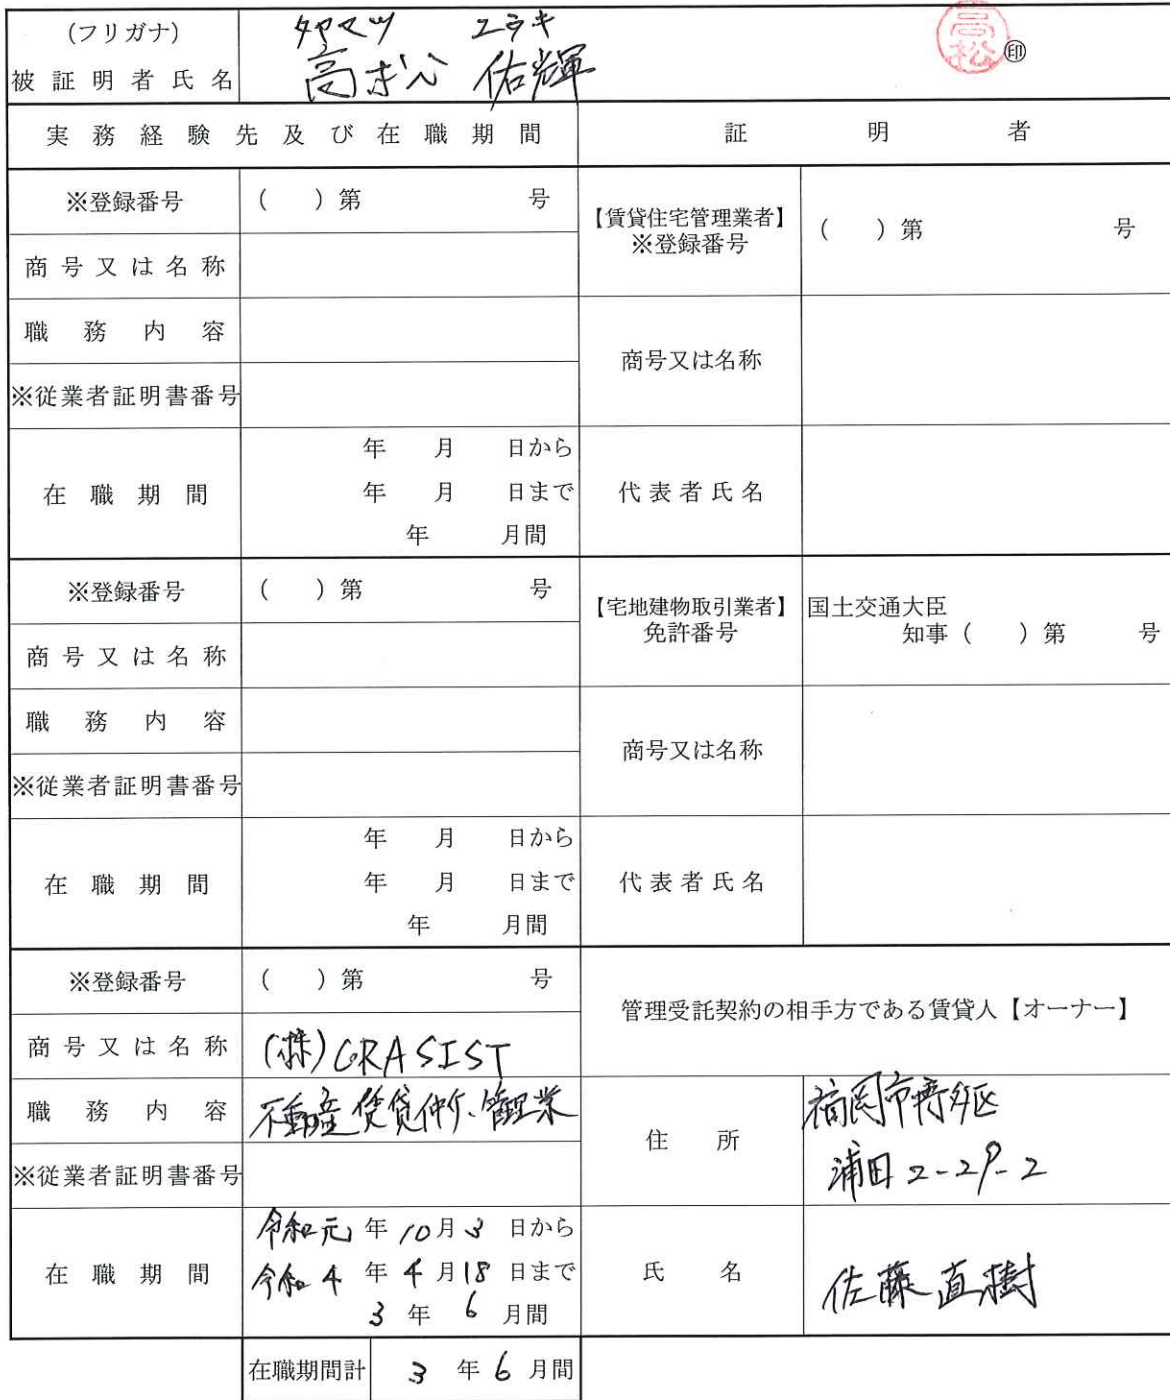 (フリガナ) タカマツ ユウキ
被証明者氏名 高松 佑輝 高松 ㊞
実務経験先及び在職期間 証明者
※登録番号 ( )第 号
【賃貸住宅管理業者】
※登録番号 ( )第 号
商号又は名称
職務内容
商号又は名称
※従業者証明書番号
在職期間
年 月 日から
年 月 日まで
年 月間
代表者氏名
※登録番号 ( )第 号
【宅地建物取引業者】
免許番号
国土交通大臣
知事( )第 号
商号又は名称
職務内容
商号又は名称
※従業者証明書番号
在職期間
年 月 日から
年 月 日まで
年 月間
代表者氏名
※登録番号 ( )第 号
管理受託契約の相手方である賃貸人【オーナー】
商号又は名称 (株)GRASIST
職務内容 不動産賃貸仲介、管理業
※従業者証明書番号
住所
福岡市博多区
浦田2-29-2
在職期間
令和元年10月3日から
令和4年4月18日まで
3年6月間
氏名 佐藤直樹
在職期間計 3年6月間